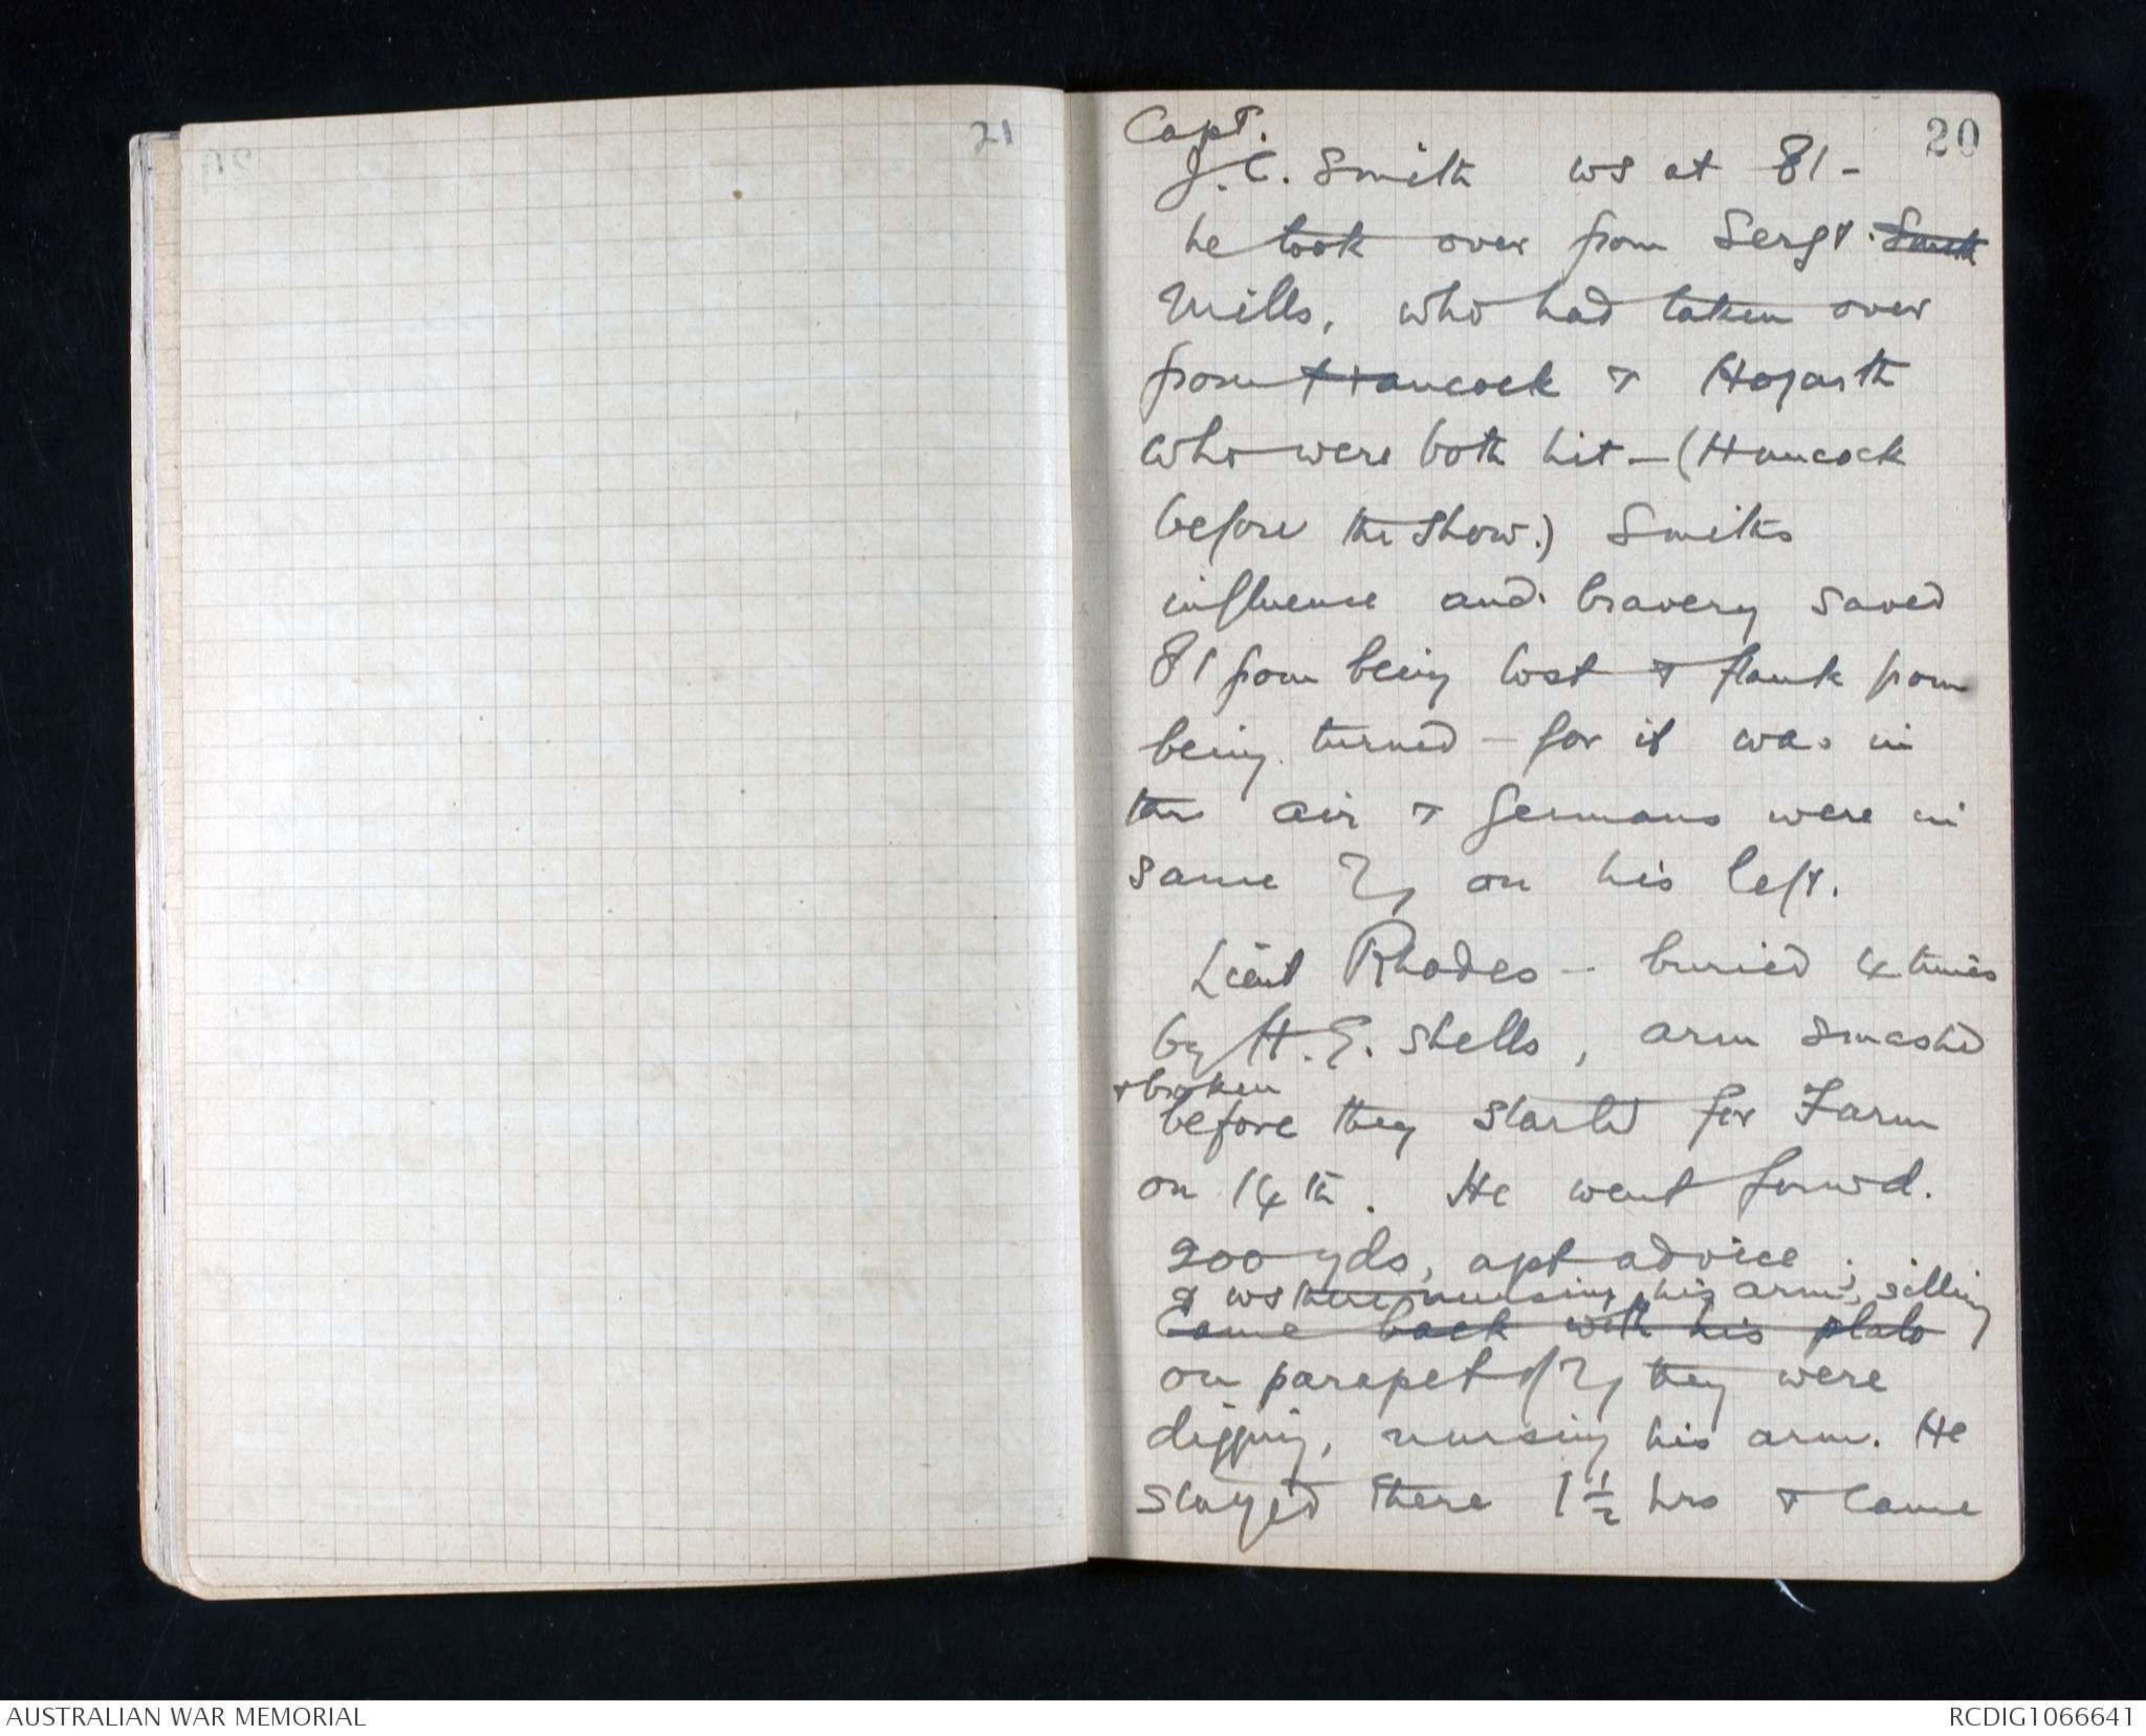 21
20
Capt.
J.C. Smith ws at 81 -
he took over from Sergt. Smith
Mills, who had taken over
from Hancock & Hogarth
who were both hit - (Hancock
before the show.) Smiths
influence and bravery saved
81 from being lost & flank from
being turned - for it was in
the air & Germans were in
same on his left.
Lieut Rhodes - buried 4 times
by H.E. shells, arm smashed
& broken
before they started for Farm
on 14th. He went forwd.
200 yds, agst advice
& ws there nursing his arm, sitting
Came back with his plato
on parapet of they were
digging, nursing his arm. He
stayed there 1 1/2 hrs & came
AUSTRALIAN WAR MEMORIAL
RCDIG1066641